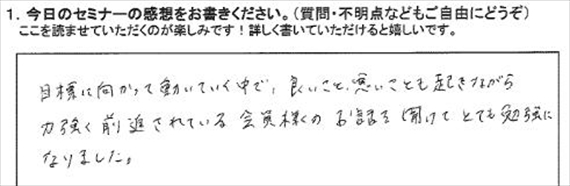 1. 今日のセミナーの感想をお書きください。(質問・不明点などもご自由にどうぞ)
ここを読ませていただくのが楽しみです!詳しく書いていただけると嬉しいです。
目標に向かって動いていく中で、良いこと、悪いことも起きながら
力強く前進されている会員様のお話を聞けてとても勉強に
なりました。